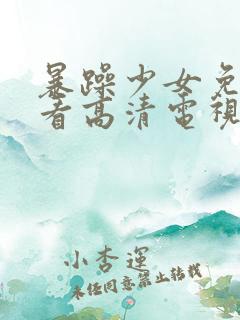 暴躁少女免
看高清電視
小杏運
未经同意禁止转载